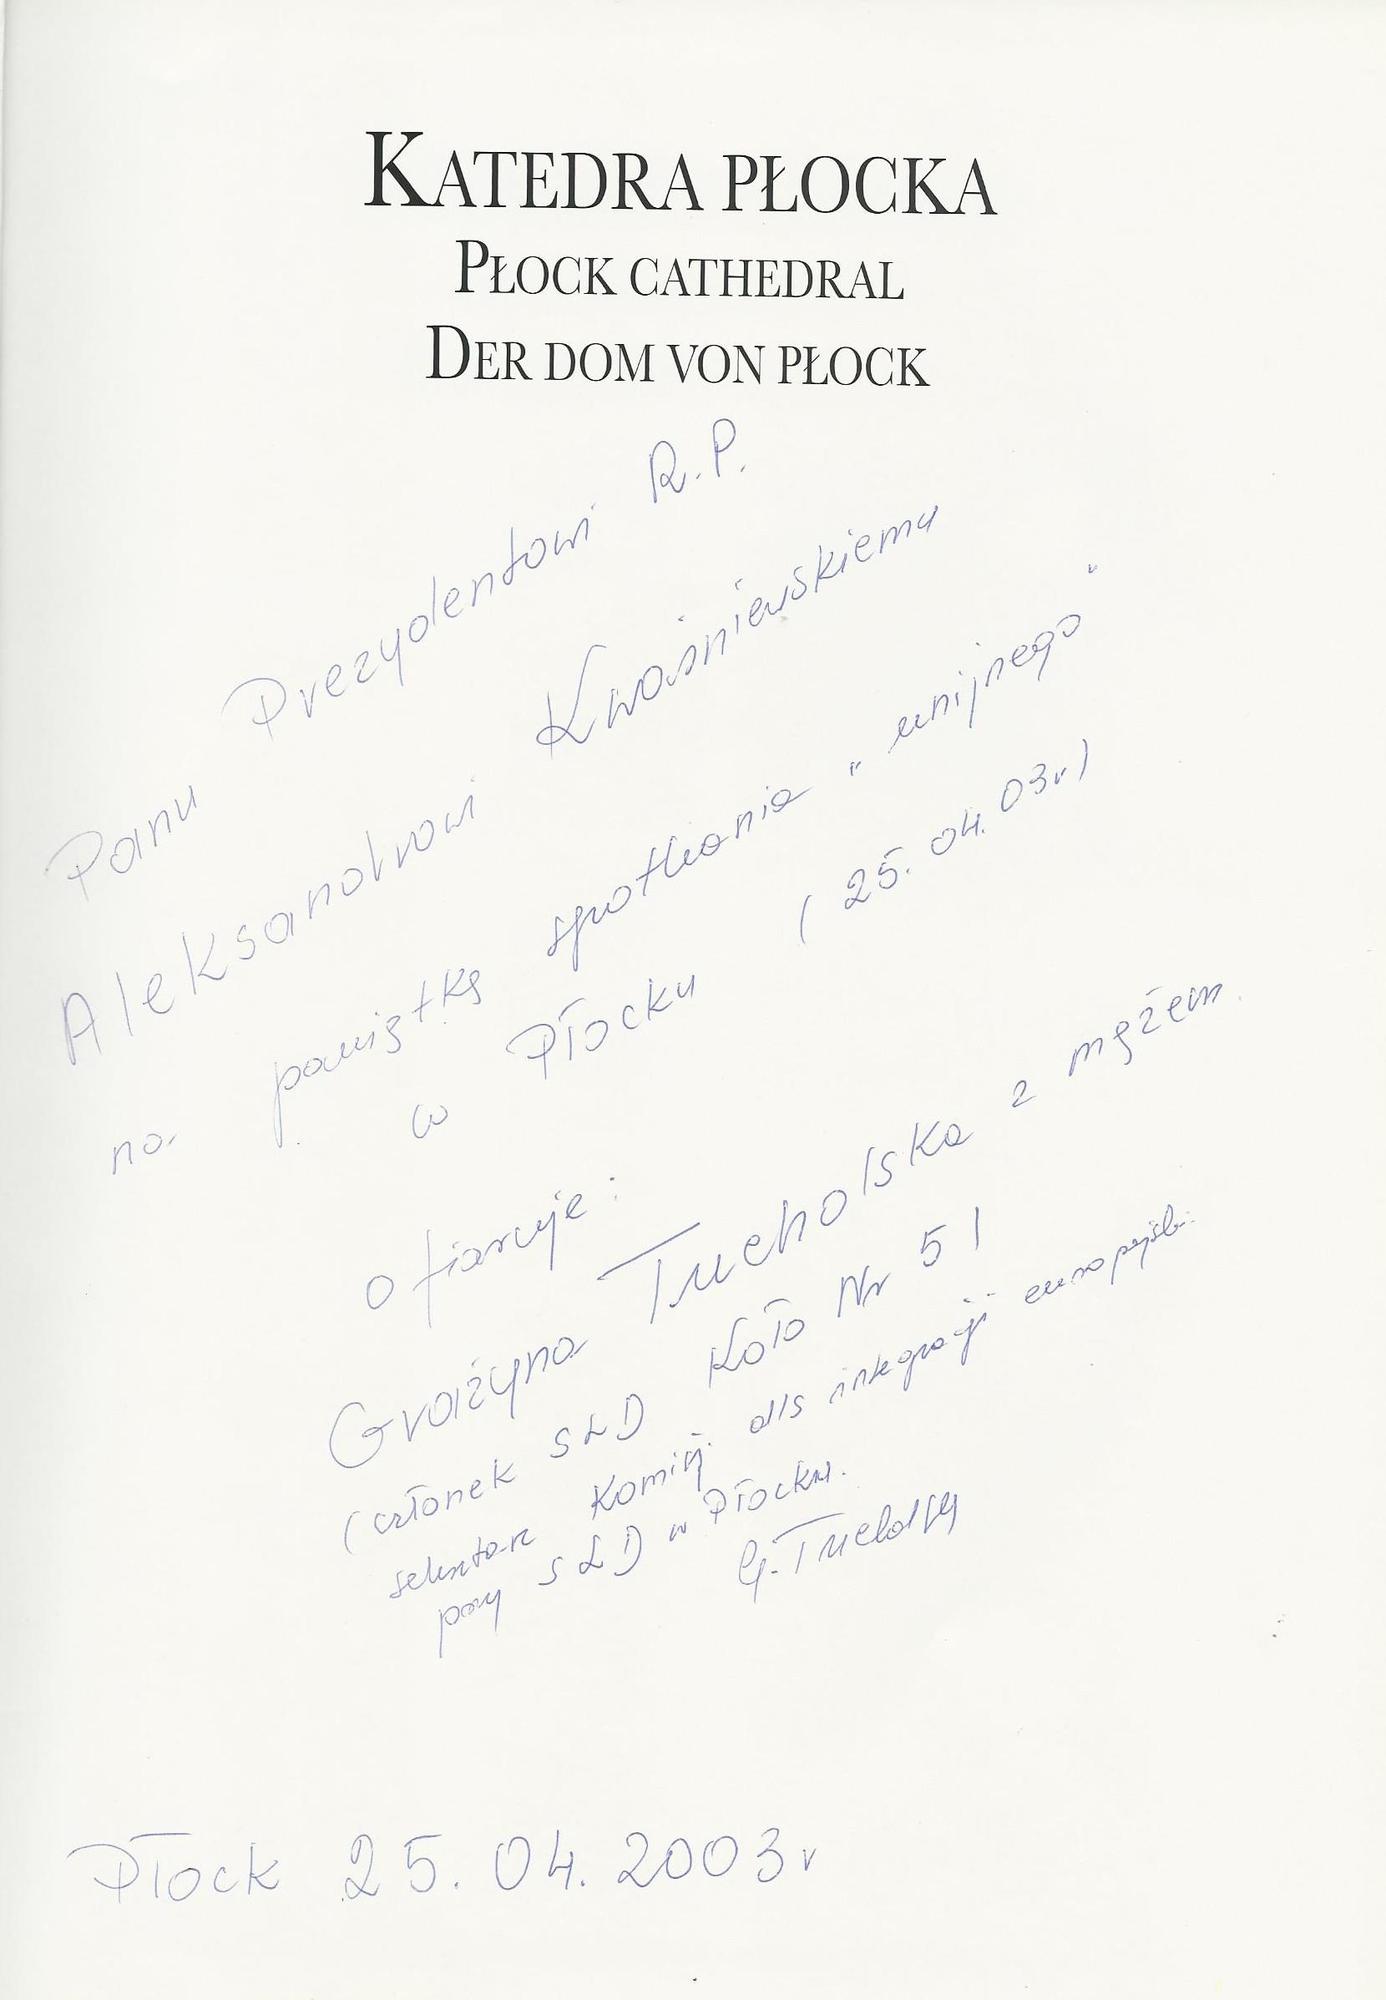 KATEDRA PŁOCKA
PŁOCK CATHEDRAL
DER DOM VON PŁOCK
Panu Prezydentowi R.P.
Aleksandrowi Kwaśniewskiemu
na pamiątkę spotkania "unijnego"
w Płocku (25.04.03r)
ofiaruje:
Grażyna Tucholska z mężem
(członek SLD Koło Nr 5)
sekretarz Komisji dla integracji europejsk.
przy SLD w Płocku.
G. Tucholska
Płock 25.04.2003r